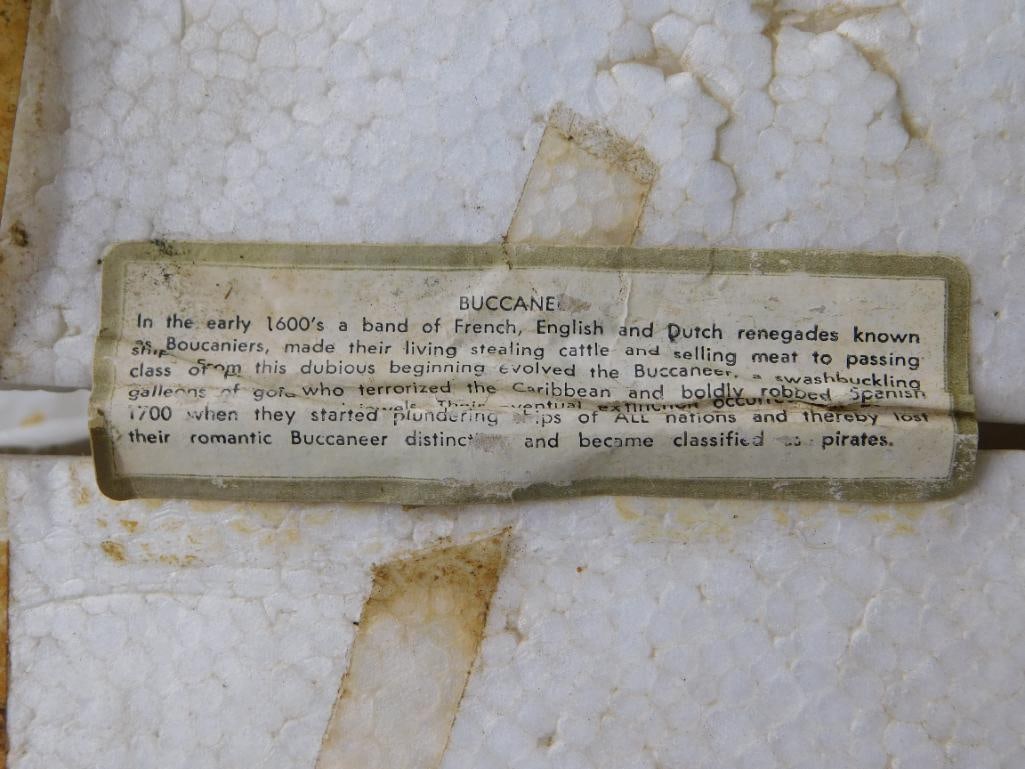 BUCCANE
In the early 1600's a band of French, English and Dutch renegades known
as Boucaniers, made their living stealing cattle and selling meat to passing
ship From this dubious beginning evolved the Buccaneer, a swashbuckling
class of who terrorized the Caribbean and boldly robbed Spanish
galleons of gold Their eventual extinction
1700 when they started plundering ships of ALL nations and thereby lost
their romantic Buccaneer distinct and became classified as pirates.